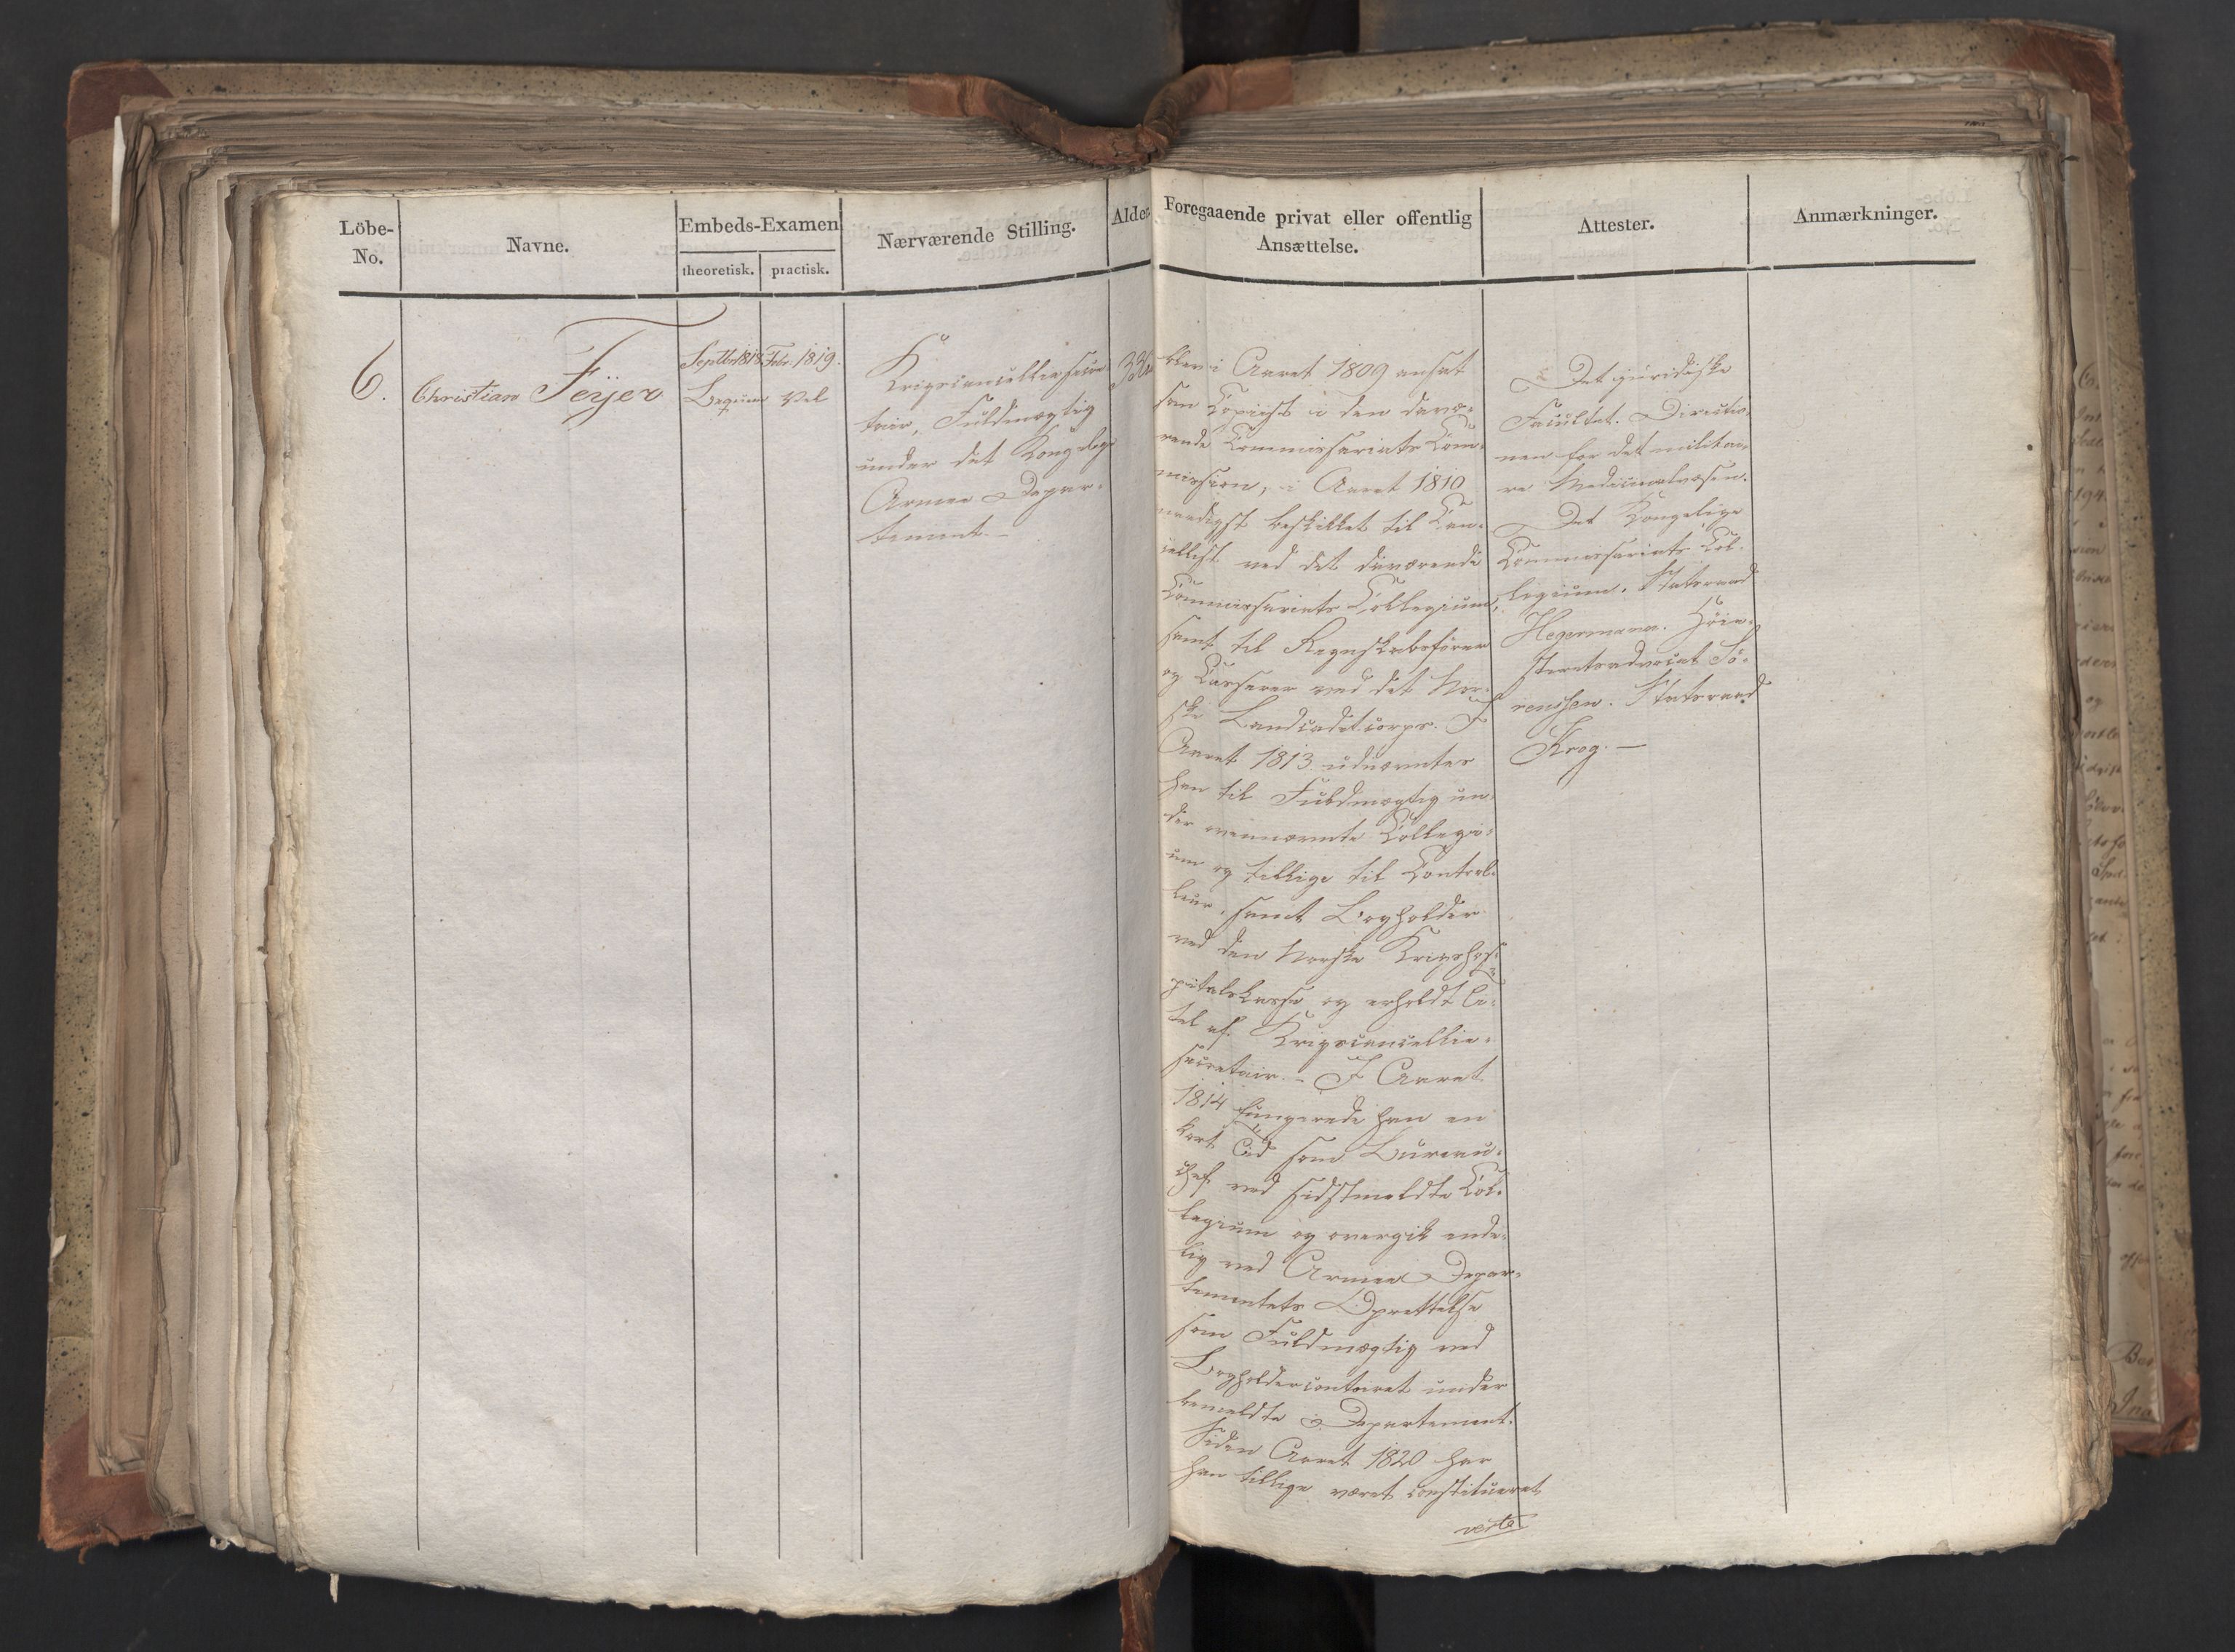 Löbe-
No.
Navne.
Embeds-Examen
theoretisk.
practisk.
Nærværende Stilling.
Alder
Foregaaende privat eller offentlig
Ansættelse.
Attester.
Anmærkninger.
6.
Christian Feÿer
Septbr 1818
Beqvem
Febr. 1819.
Vel
Krigscancelliesecre-
tair, Fuldmægtig
under det Kongelige
Armee Depar-
tement. -
blev i Aaret 1809 ansat
som Copiist i den davæ-
rende Commissariats Com-
mission, i Aaret 1810
naadigst beskikket til Can-
cellist ved det daværende
Commissariats Collegium,
samt til Regnskabsfører
og Casserer ved det Nor-
ske Landcadetcorps. I
Aaret 1813 udnævntes
han til Fuldmægtig un-
der ovennævnte Collegi-
um og tillige til Control-
leur, samt Bogholder
ved den Norske Krigshos-
pitalskasse og erholdt Ti-
tel af Krigscancellie-
secretair. - I Aaret
1814 fungerede han en
kort Tid som Bureau-
chef ved sidstmeldte Col-
legium og overgik ende-
lig ved Armee Depar-
tementets Oprettelse
som Fuldmægtig ved
Bogholdercontoiret under
bemeldte Departement.
Siden Aaret 1820 har
han tillige været constitueret
verte
Det juridiske
Facultet. Directio-
nen for det militai-
re Medicinalvæsen.
Det Kongelige
Commissariats Col-
legium. Statsraad
Hegermann. Höie-
steretsadvocat Sö-
renssen. Statsraad
Krog. -